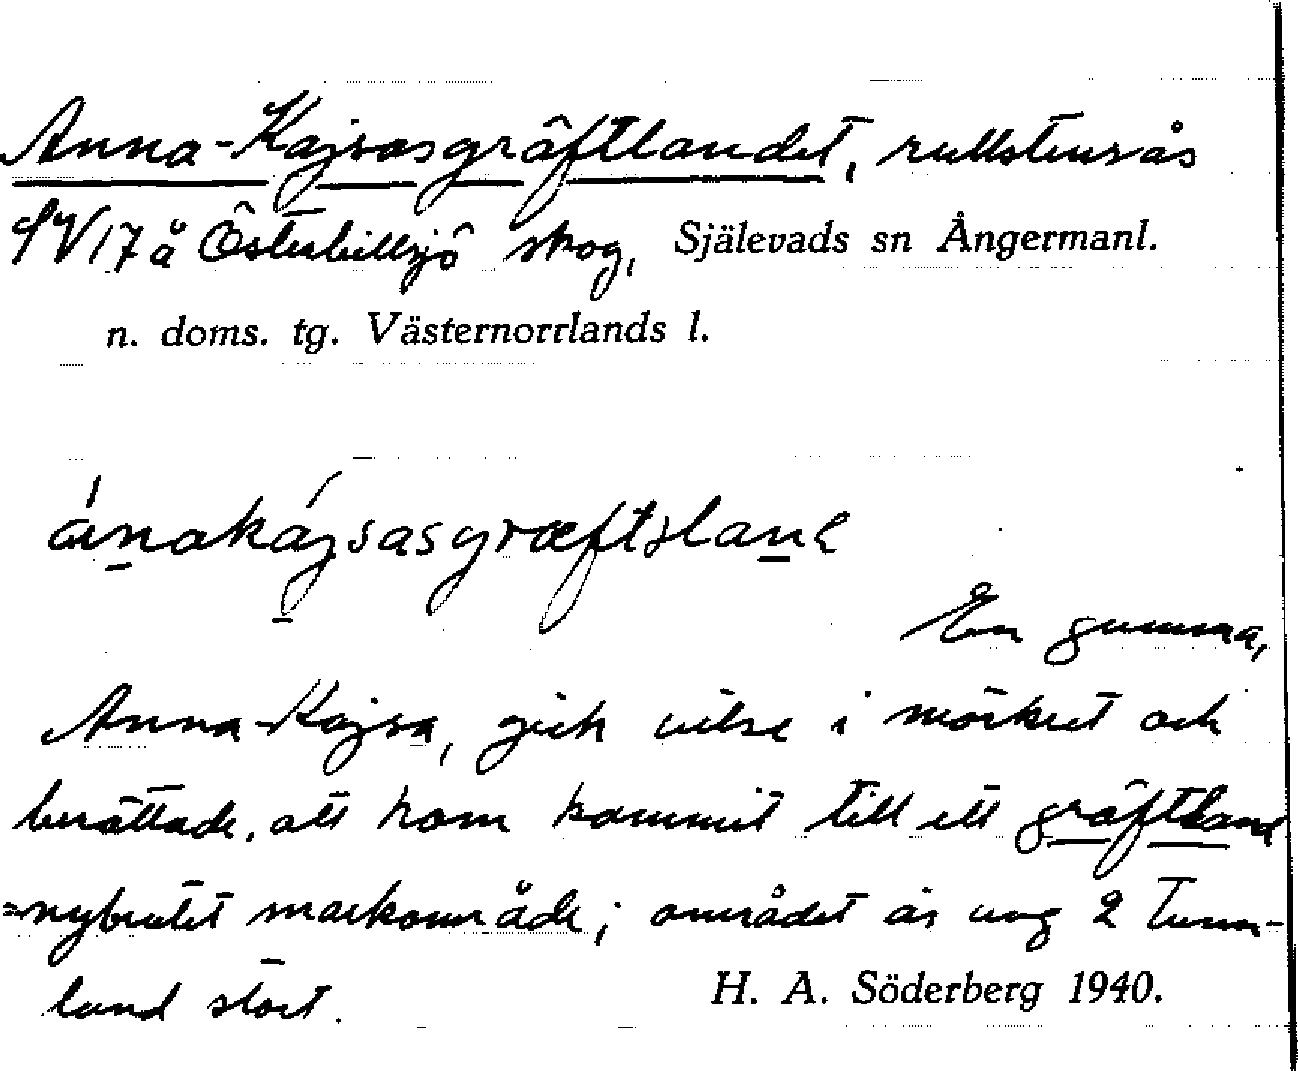 Anna-Kajsasgräftlandet, rullstensås
SV17 å Österbillsjö skog, Själevads sn Ångermanl.
n. doms. tg. Västernorrlands l.
ánakájsasgræftslanḙ
En gumma,
Anna-Kajsa, gick vilse i mörkret och
berättade, att hon kommit till ett gräftland
=nybrutet markområde; området är nog 2 tunn-
land stort. H. A. Söderberg 1940.